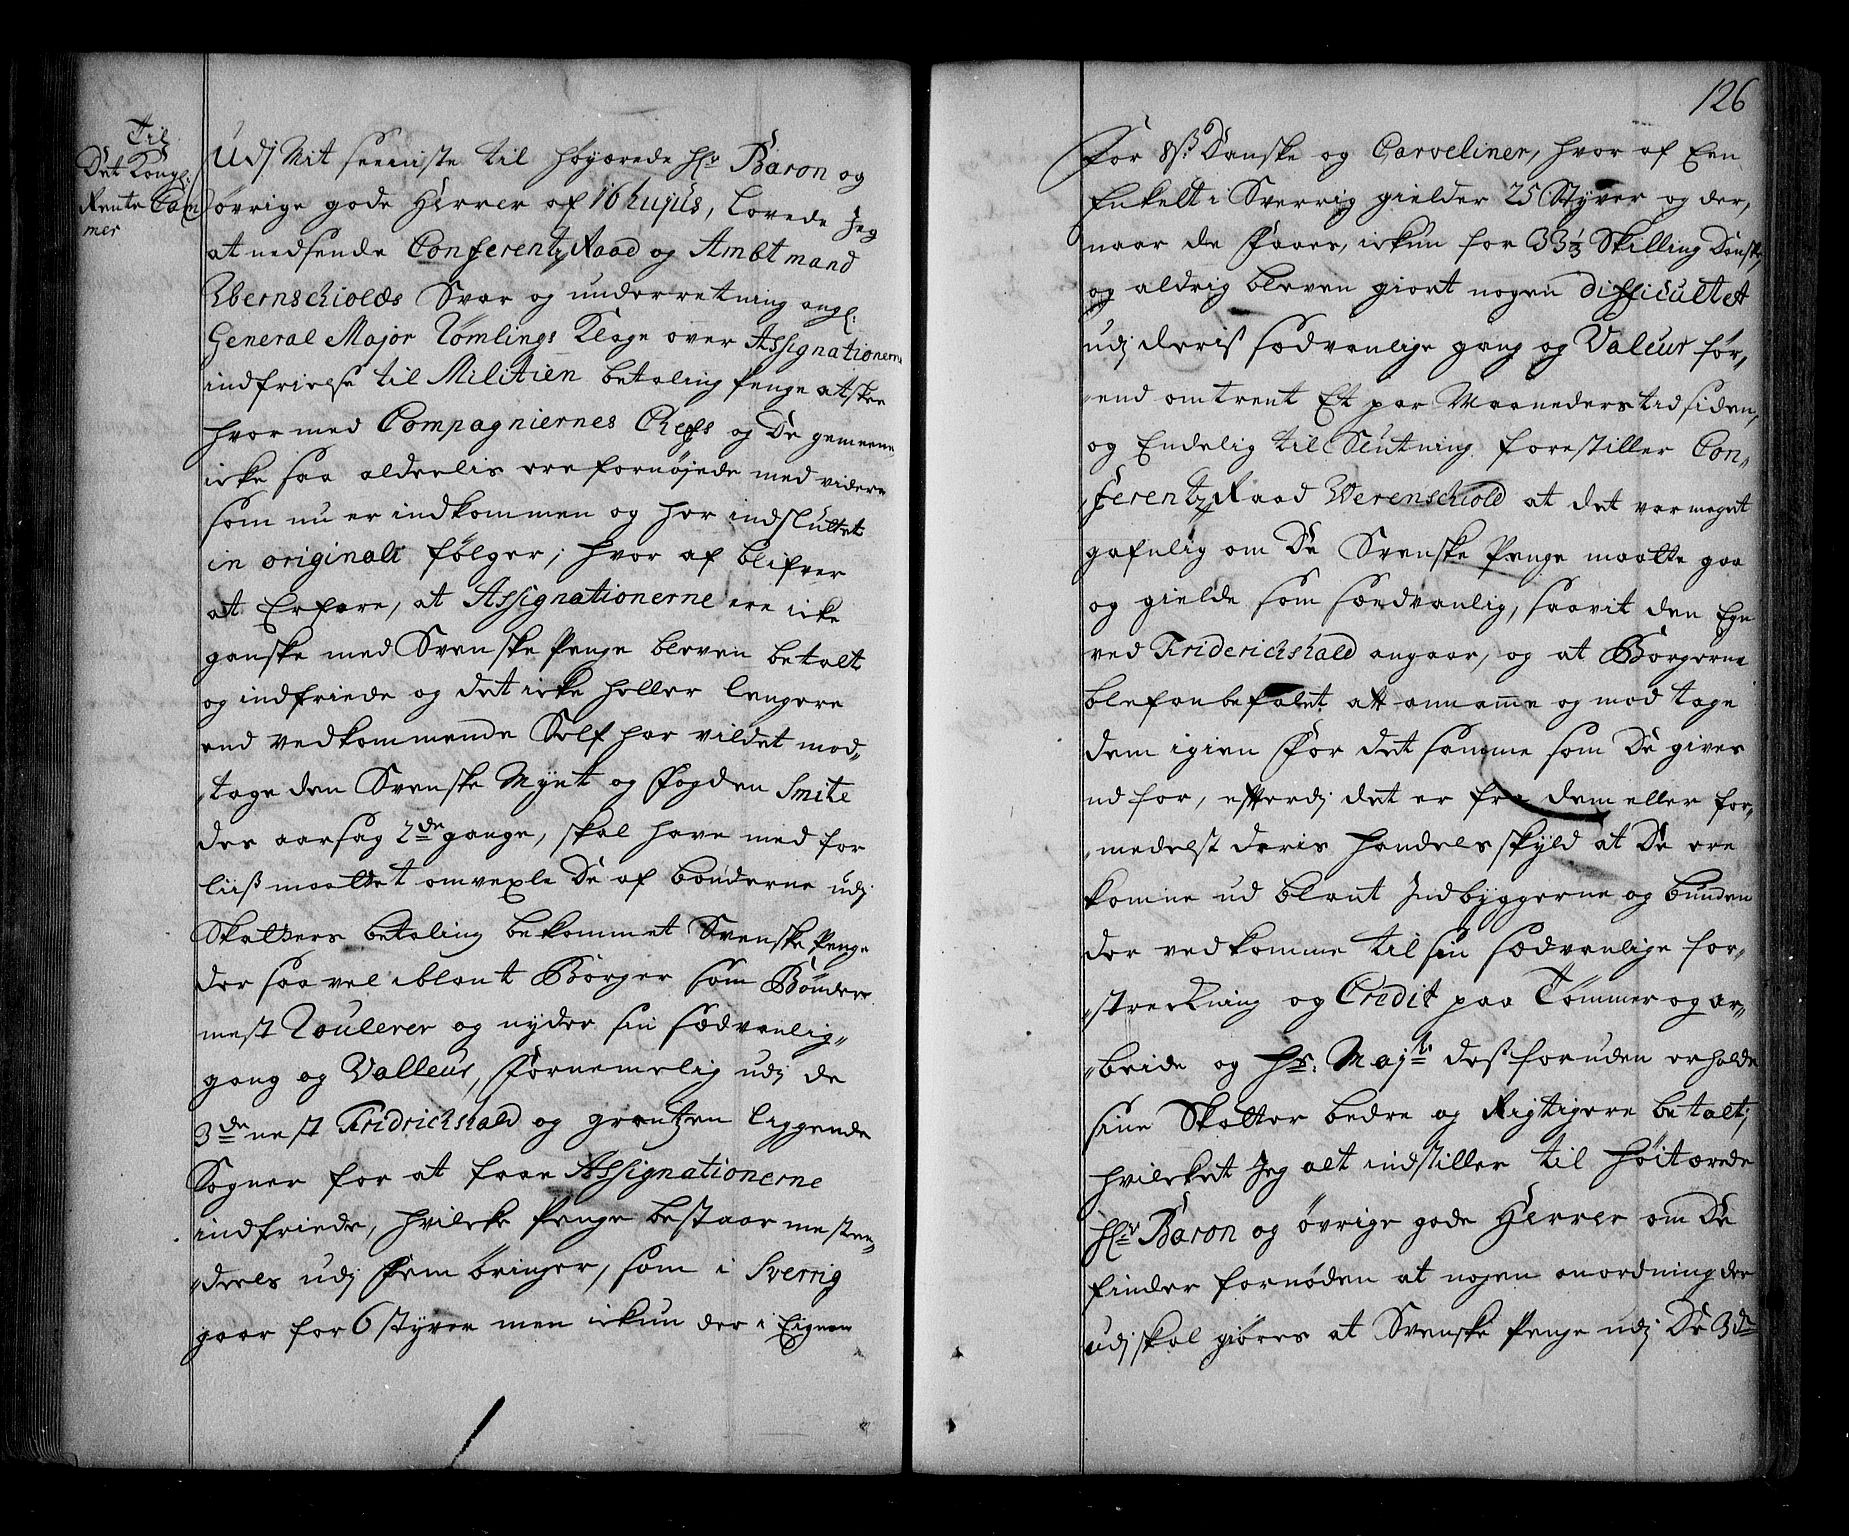 Til
Det Kongl:
Rente Cam
mer
Udj Mit seeniste til høyærede Hr Baron og
øvrige gode Herrer af 16 hujus, lovede Jeg
at nedsende Conferentz Raad og Ambtmand
Wernschiolds Svar og underretning angl:
General Major Tømlings Klage over Assignationerne
indfrielse til Militien betaling penge at skee
hvormed Compagniernes Chefs og De gemeene
icke saa alderlis ere fornøjede med videre
som nu er indkommen og her indsluttet
in originali følger; hvor af blifver
at Erfare, at Assignationerne ere icke
ganske med Svenske Penge bleven betalt
og indfriede og det icke heller lengere
end vedkommende Self har vildet mod„
„tage den Svenske Mynt og Fogden Smite
der aarsag 2de gange, skal have med for
liiß maattet omvexle De af bønderne udj
Skatters betaling bekommet Svenske Penge
der saa vel iblant Borger som Bønder
mest Roulerer og nyder sin sædvanlig„
gang og Valleur, Fornemelig udj de
3de nest Fridrichshald og grentzen liggende
Sogner for at faae Assignationerne
indfriede, hvilcke Penge bestaar mesten„
„deels udj Fem øringer, som i Sverrig
gaar for 6 styver men ickun der i Eignen
126
For 8s Danske og Caroeliner, hvor af Een
Enkelt i Sverrig gielder 25 Styver og der,
naar de Faaes, ickun for 33 1/3 Skilling Danske,
og aldrig bleven giort nogen difficultet
udj deris sædvanlige gang og Valeur før„
„end omtrent Et par Maaneders tid siden,
og Endelig til Slutning forestiller Con„
„ferentz Raad Werenschiold at det var meget
gafnlig om De Svenske Penge maatte gaa
og gielde som sædvanlig, saavit den Egn
ved Friderichshald angaar, og at Borgerne
blef anbefalet att annamme og modtage
dem igien For det samme som De gives
ud for, efterdj det er fra dem eller for„
„medelst deris handels skyld at De ere
komne ud blant Indbyggerne og bunden
der ved komme til sin sædvanlige for„
„streckning og Credit paa Tømmer og ar„
„beide og Hs. Majts desforuden erholde
sine Skatter bedre og Rigtigere betalt;
hvilcket Jeg alt indstiller til høitærede
Hr Baron og øvrige gode Herrer om De
finder fornøden at nogen anordning der
udj skal giøres at Svenske Penge udj De 3de